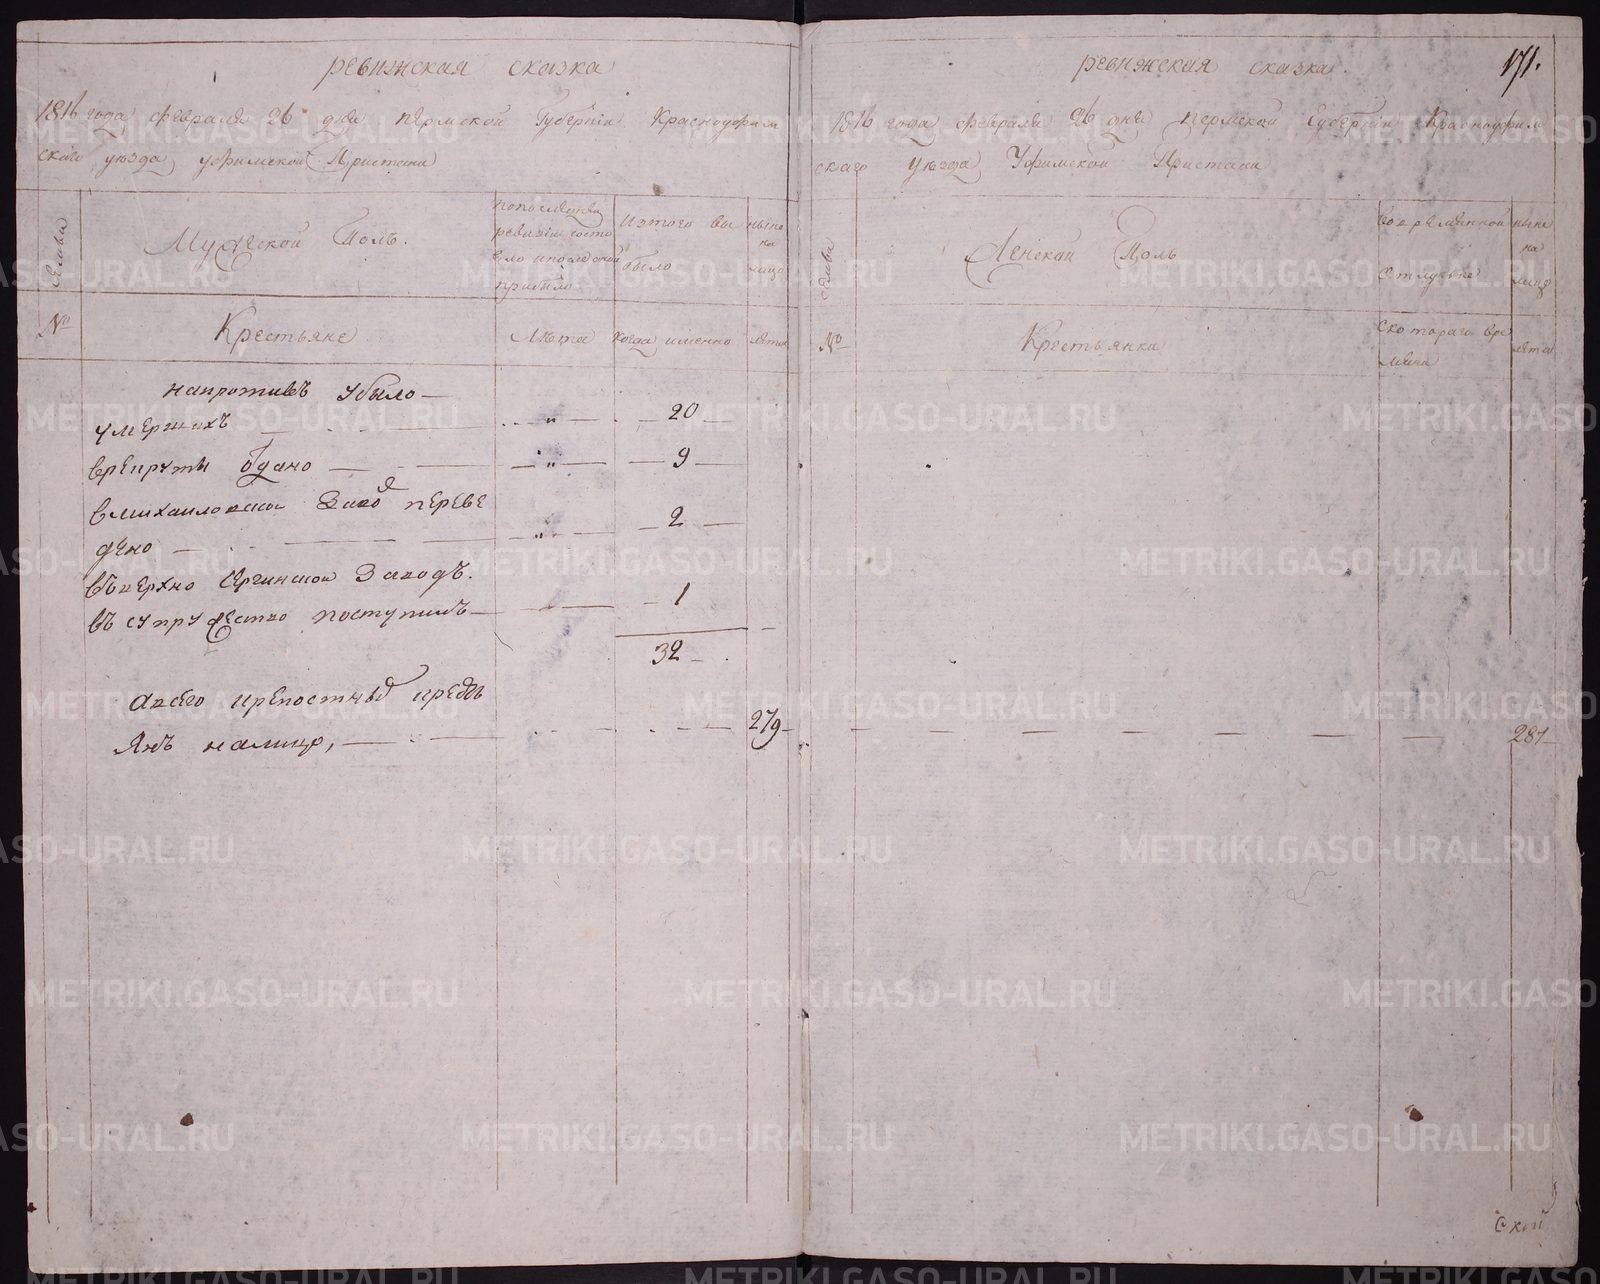 ревижская сказка
1816 года февраля 26 дня пермской Губернiи Красноуфим
скаго уѣзда, уфимской Пристани
семьи
Мужеской Полъ.
попоследней
ревизiи состо
яло ипослѣ оной
прибыло
Изтого вы
было
ныне
на
лицо
№
Крестьяне
Лѣта
Когда именно
лѣта
напротивъ Убыло —
умершихъ — " — 20 —
врекруты Одано — " — 9 —
вмихаиловской Завод переве
дено — " — 2 —
въверхно Сергинской Заводъ.
въ супружество поступилъ — 1
32 —
авсего крепостныхъ кресть
Янъ налицо, — 279 —
171.
ревижская сказка.
1816 года февраля 26 дня пермской Губернiи Красноуфим
скаго Уѣзда, Уфимской Пристани
семьи
Женской Полъ
вовременной
отлучке
ныне
на
лицо
№
Крестьянки
Скотораго вре
мяни
лѣта
— 281 —
Ской
METRIKI.GASO-URAL.RU